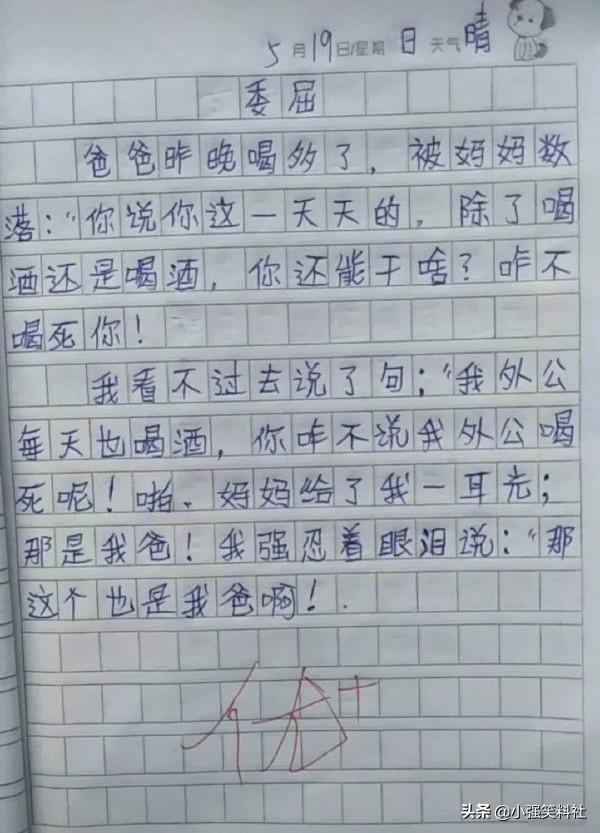 5月19日/星期 日 天气 晴
委屈
爸爸昨晚喝多了，被妈妈数
落："你说你这一天天的，除了喝
酒还是喝酒，你还能干啥？咋不
喝死你！
我看不过去说了句："我外公
每天也喝酒，你咋不说我外公喝
死呢！啪、妈妈给了我一耳光；
那是我爸！我强忍着眼泪说："那
这个也是我爸啊！.
优+
头条 @小强笑料社